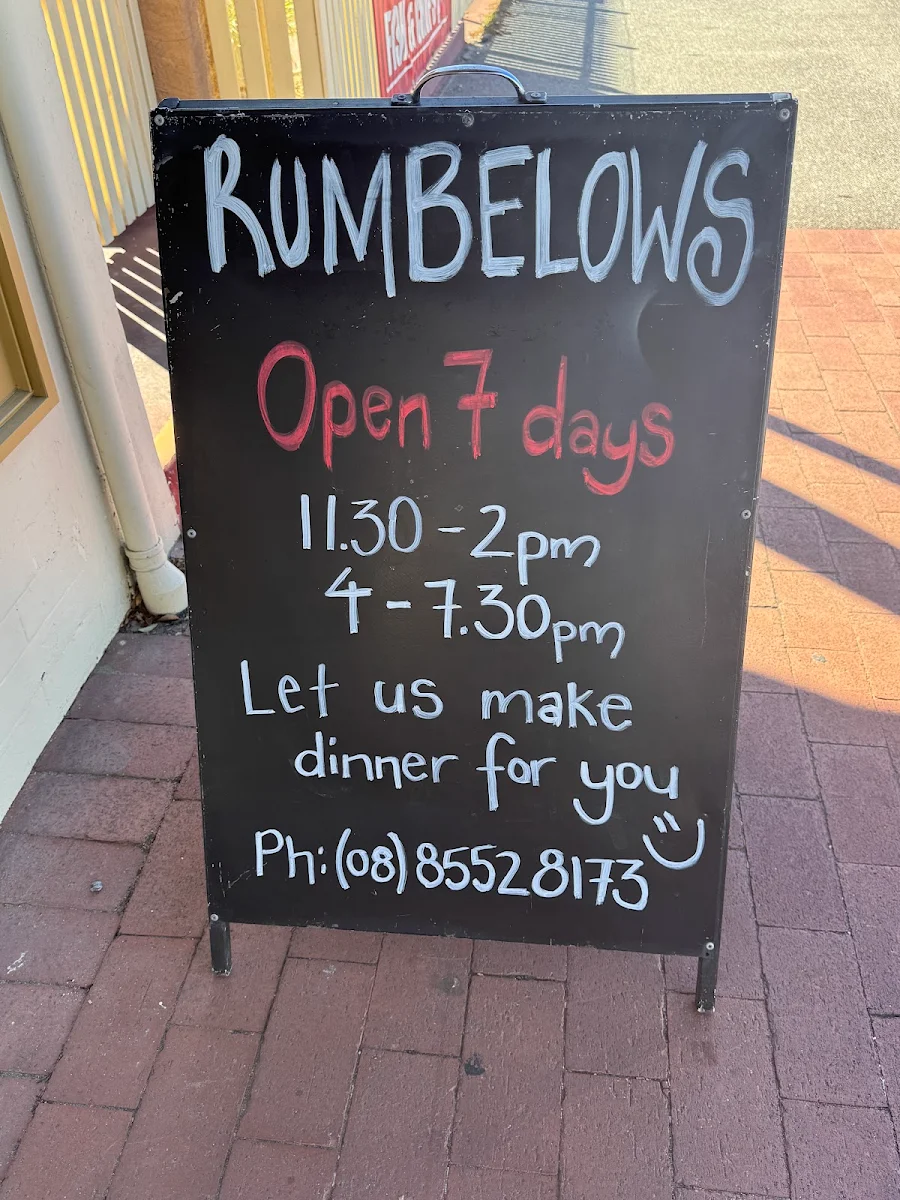 RUMBELOWS
Open 7 days
11.30 - 2pm
4 - 7.30pm
Let us make
dinner for you
Ph: (08) 8552 8173